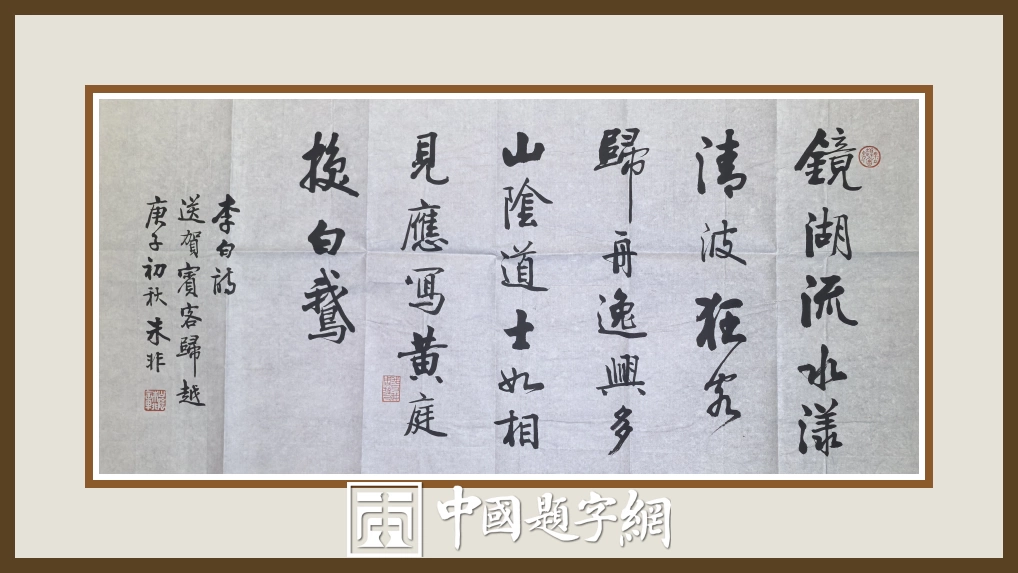 鏡湖流水漾
清波狂客
歸舟逸興多
山陰道士如相
見應寫黃庭
換白鵝
李白詩
送賀賓客歸越
庚子初秋朱非
中國題字網